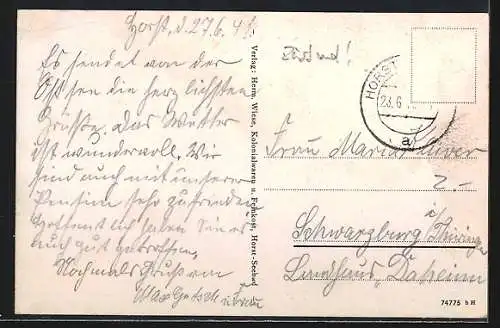 Horst, d. 27.6.41.
Es sendet von der
Ostsee die herzlichsten
Grüße. Das Wetter
ist wundervoll. Wir
sind auch mit unserer
Pension sehr zufrieden
Hoffentlich haben Sie es
auch gut getroffen.
Nochmals Gruß von
Max u. Frau
Verlag: Herm. Wiese, Kolonialwaren u. Feinkost, Horst-Seebad
HORST
23.6
a
Frau Maria
2.-
Schwarzburg i/Thüringen
Landhaus Daheim
74775 b H